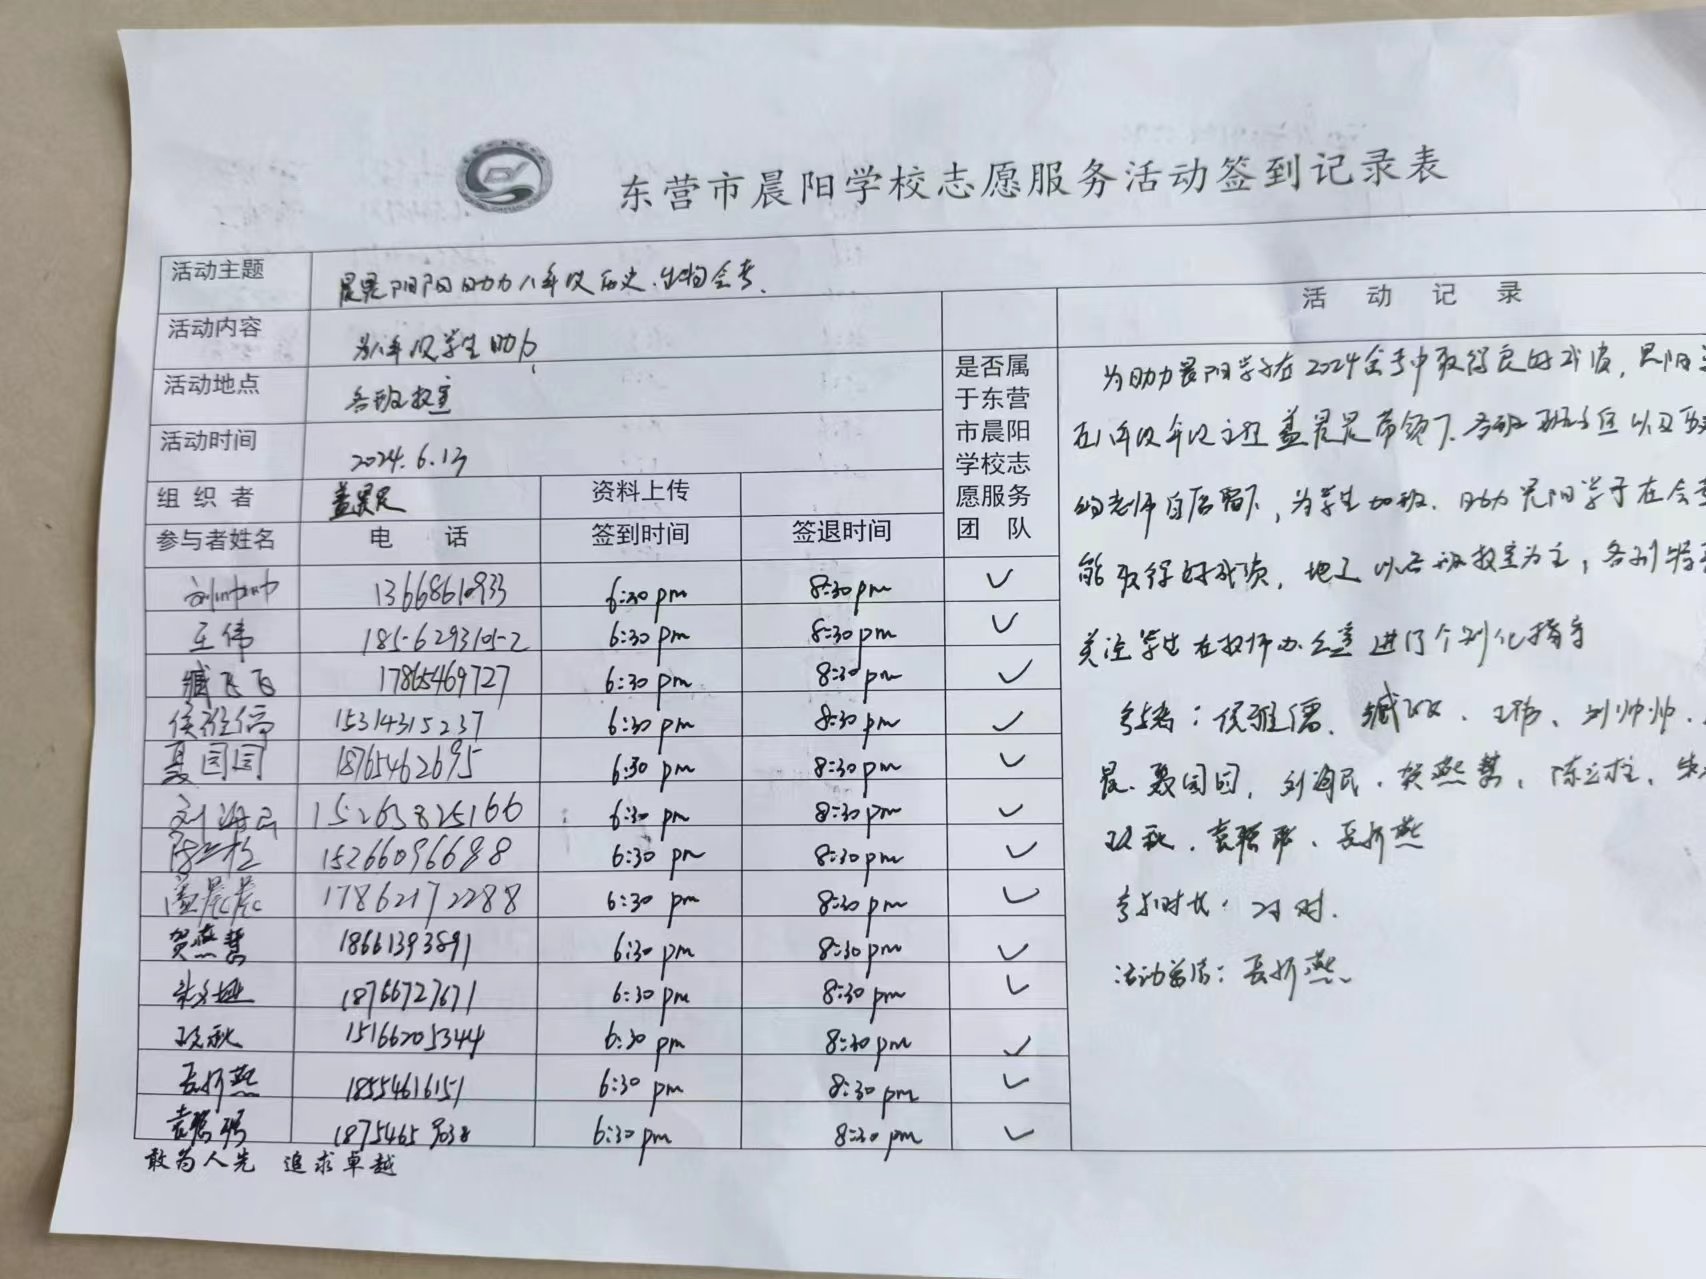 东营市晨阳学校志愿服务活动签到记录表
活动主题 晨晨阳阳助力八年级历史、生物会考.
活动内容 为八年级学生助力
活动地点 各班教室
活动时间 2024.6.13
组织者 盖晨晨 资料上传
参与者姓名 电话 签到时间 签退时间
是否属于东营市晨阳学校志愿服务团队
刘帅帅 13668610933 6:30pm 8:30pm ✓
王伟 18562931052 6:30pm 8:30pm ✓
臧飞飞 17865469727 6:30pm 8:30pm ✓
侯雅儒 15314315237 6:30pm 8:30pm ✓
聂园园 18765462695 6:30pm 8:30pm ✓
刘海民 15263825166 6:30pm 8:30pm ✓
陈立柱 15266096698 6:30pm 8:30pm ✓
盖晨晨 17862172288 6:30pm 8:30pm ✓
贺燕慧 18661393891 6:30pm 8:30pm ✓
18766727671 6:30pm 8:30pm ✓
秋 15166205344 6:30pm 8:30pm ✓
燕 18554616151 6:30pm 8:30pm ✓
袁 18754659038 6:30pm 8:30pm ✓
敢为人先 追求卓越
活动记录
为助力晨阳学子在2024会考中取得良好成绩,晨阳
在八年级年级主任盖晨晨带领下、各班班主任以及
的老师自后留下,为学生加班、助力晨阳学子在会考
能取得好成绩,地点以各班教室为主,各别特
关注学生在教师办公室进行个别化指导
参与者:侯雅儒、臧飞飞、王伟、刘帅帅、
晨、聂园园、刘海民、贺燕慧、陈立柱、朱
秋、袁、燕
参与时长:2小时.
活动总结:燕